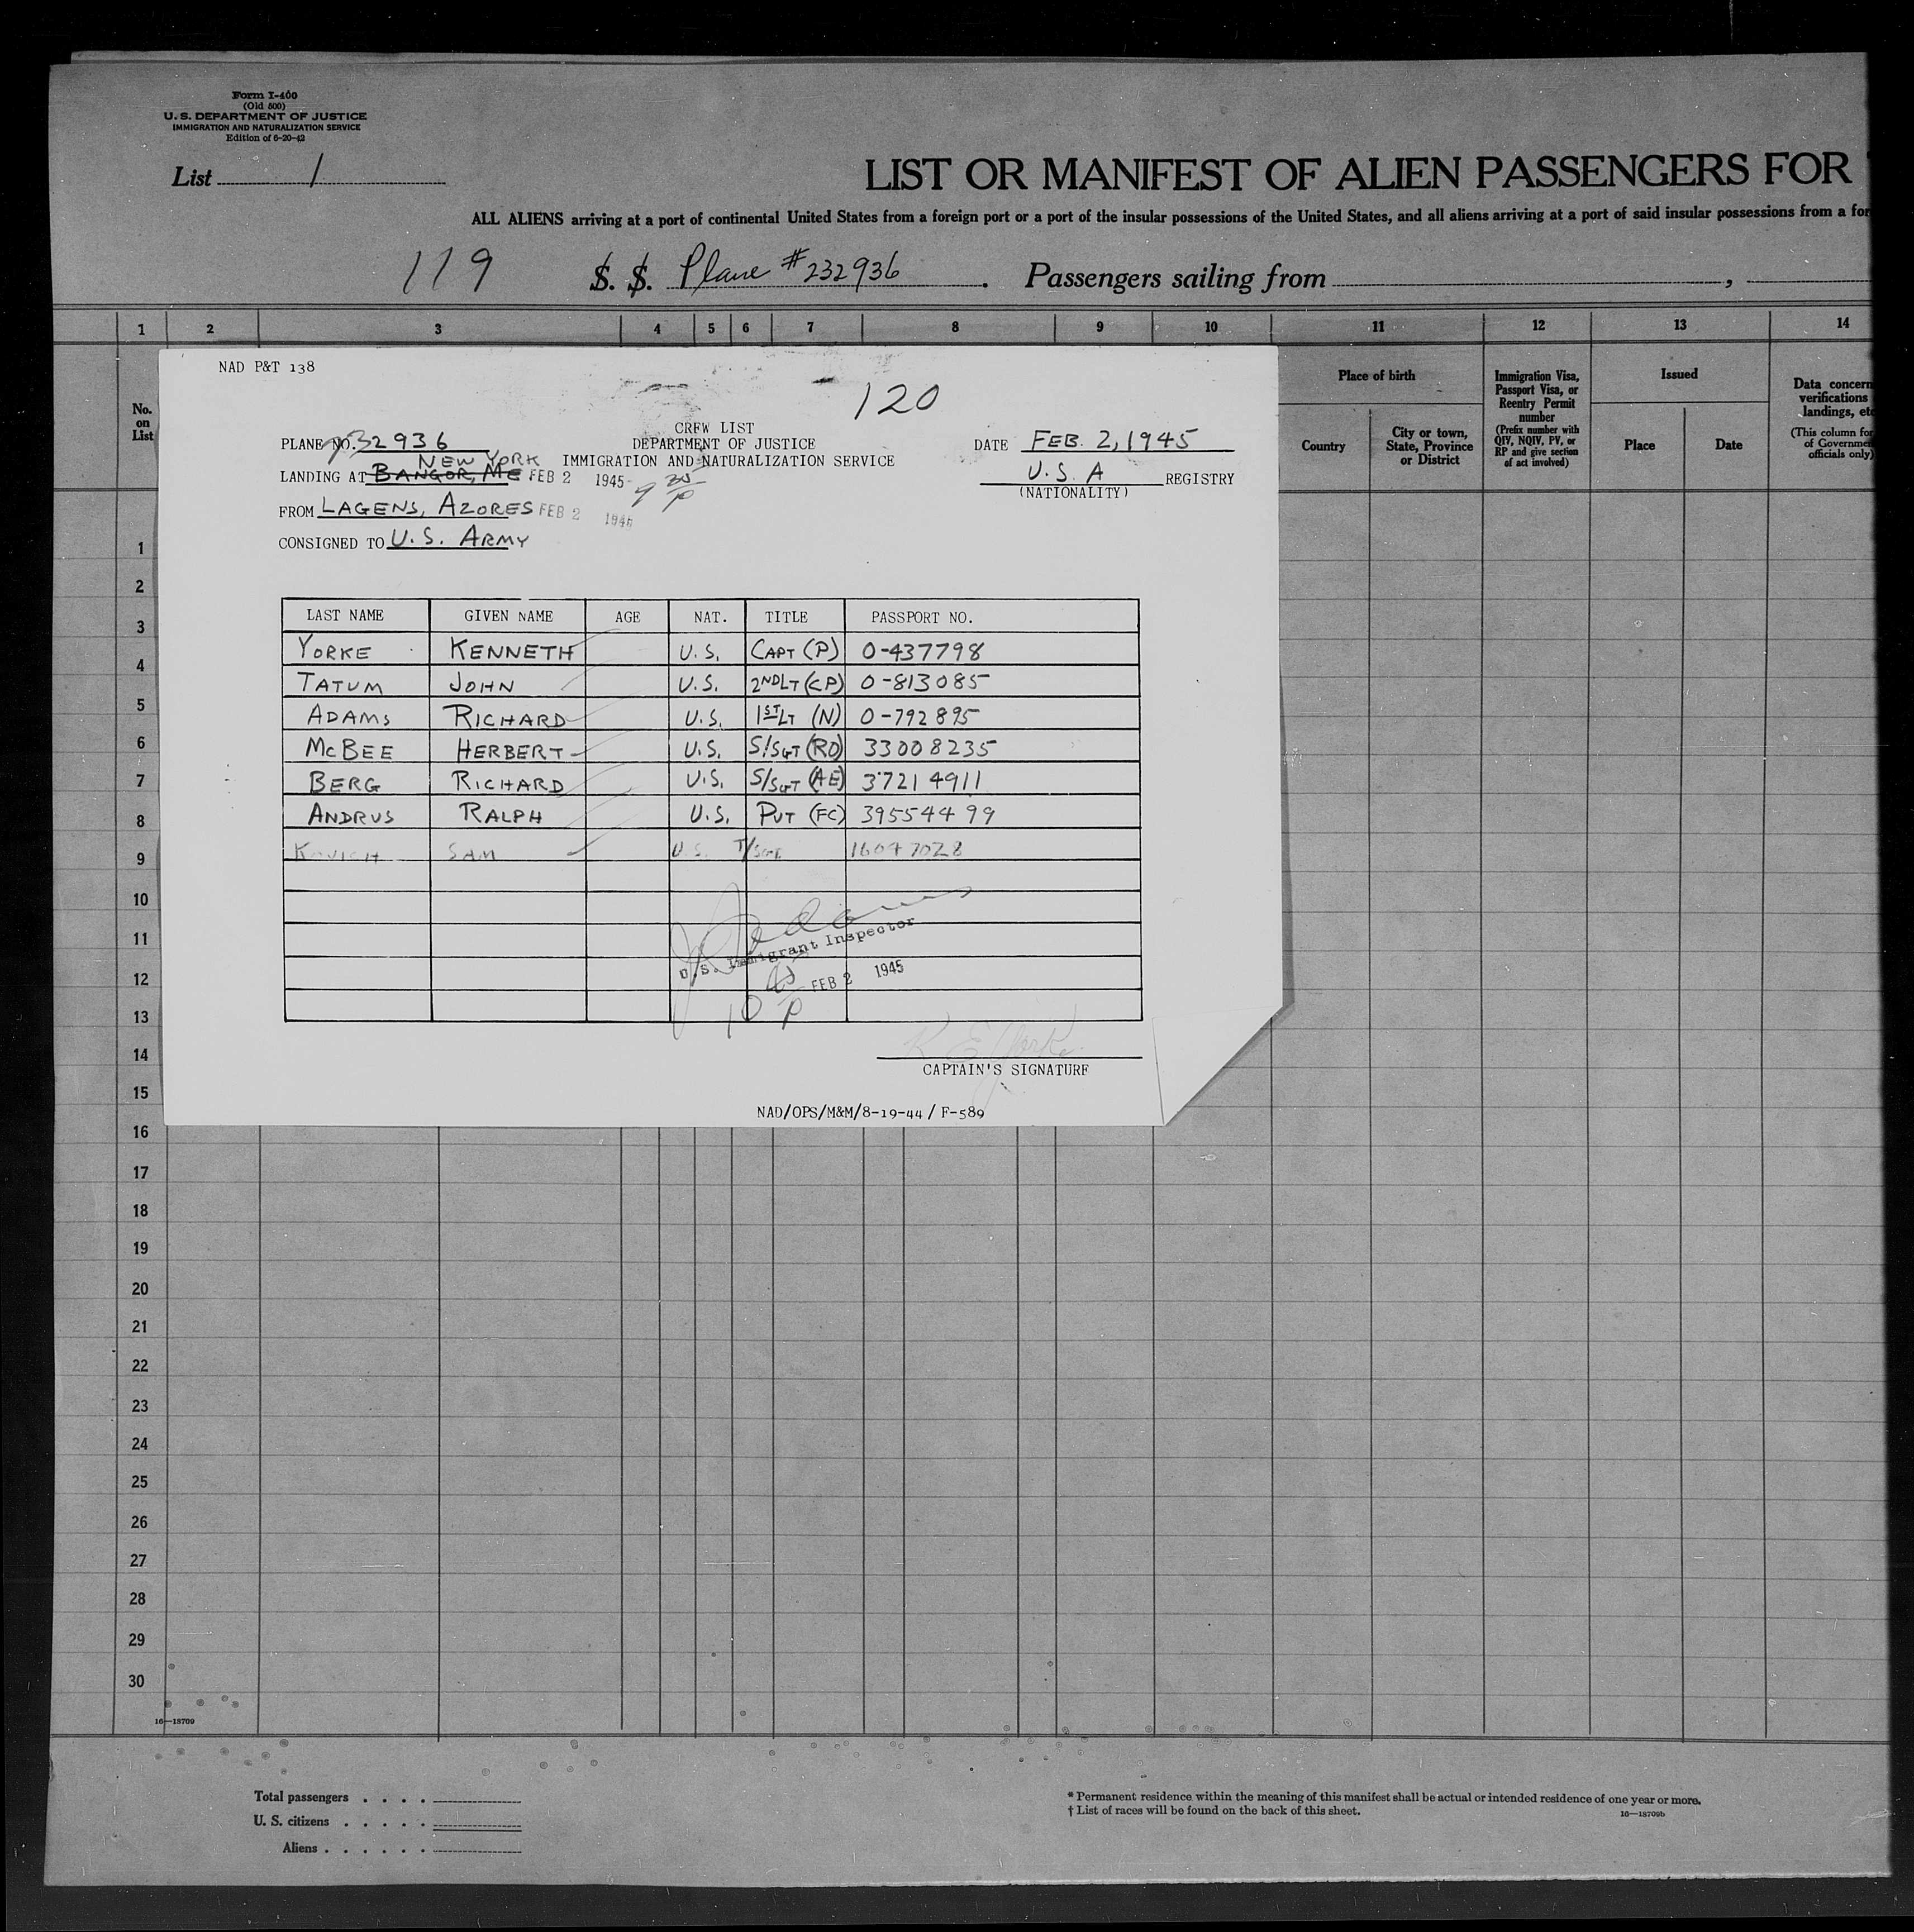 Form I-400
(Old 500)
U. S. DEPARTMENT OF JUSTICE
IMMIGRATION AND NATURALIZATION SERVICE
Edition of 6-20-42
List 1
LIST OR MANIFEST OF ALIEN PASSENGERS FOR
ALL ALIENS arriving at a port of continental United States from a foreign port or a port of the insular possessions of the United States, and all aliens arriving at a port of said insular possessions from a for
119 S. S. Plane #232936 . Passengers sailing from ,
1 2 3 4 5 6 7 8 9 10 11 12 13 14
No. on List
Place of birth
Country
City or town, State, Province or District
Immigration Visa, Passport Visa, or Reentry Permit number
(Prefix number with QIV, NQIV, PV, or RP and give section of act involved)
Issued
Place
Date
Data concern
verifications
landings, etc
(This column for
of Governmen
officials only)
NAD P&T 138
120
CREW LIST
PLANE NO. 32936 DEPARTMENT OF JUSTICE DATE FEB. 2, 1945
NEW YORK
LANDING AT BANGOR, ME FEB 2 1945 IMMIGRATION AND NATURALIZATION SERVICE U.S.A REGISTRY
9 30 P
(NATIONALITY)
FROM LAGENS, AZORES FEB 2 1945
CONSIGNED TO U.S. ARMY
LAST NAME GIVEN NAME AGE NAT. TITLE PASSPORT NO.
YORKE KENNETH U.S. CAPT (P) 0-437798
TATUM JOHN U.S. 2ND LT (CP) 0-813085
ADAMS RICHARD U.S. 1ST LT (N) 0-792895
MCBEE HERBERT U.S. S/SGT (RO) 33008235
BERG RICHARD U.S. S/SGT (AE) 37214911
ANDRUS RALPH U.S. PVT (FC) 39554499
SAM U.S. T/SGT 16047028
U.S. Immigrant Inspector
FEB 2 1945
10 45 P
K E Yorke
CAPTAIN'S SIGNATURE
NAD/OPS/M&M/8-19-44 / F-589
1
2
3
4
5
6
7
8
9
10
11
12
13
14
15
16
17
18
19
20
21
22
23
24
25
26
27
28
29
30
16—18709
Total passengers . . . .
U. S. citizens . . . . .
Aliens . . . . . .
* Permanent residence within the meaning of this manifest shall be actual or intended residence of one year or more.
† List of races will be found on the back of this sheet.
16—18709b